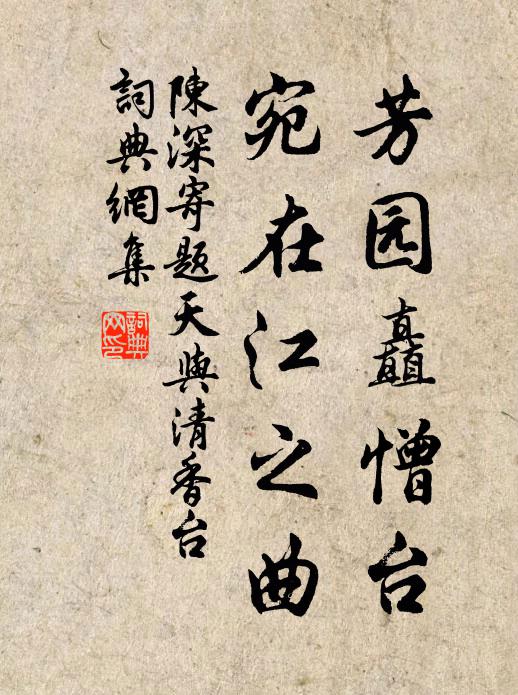 芳园矗憎台
宛在江之曲
陳深寄题天與清香台
詞典網集
詞典
网印